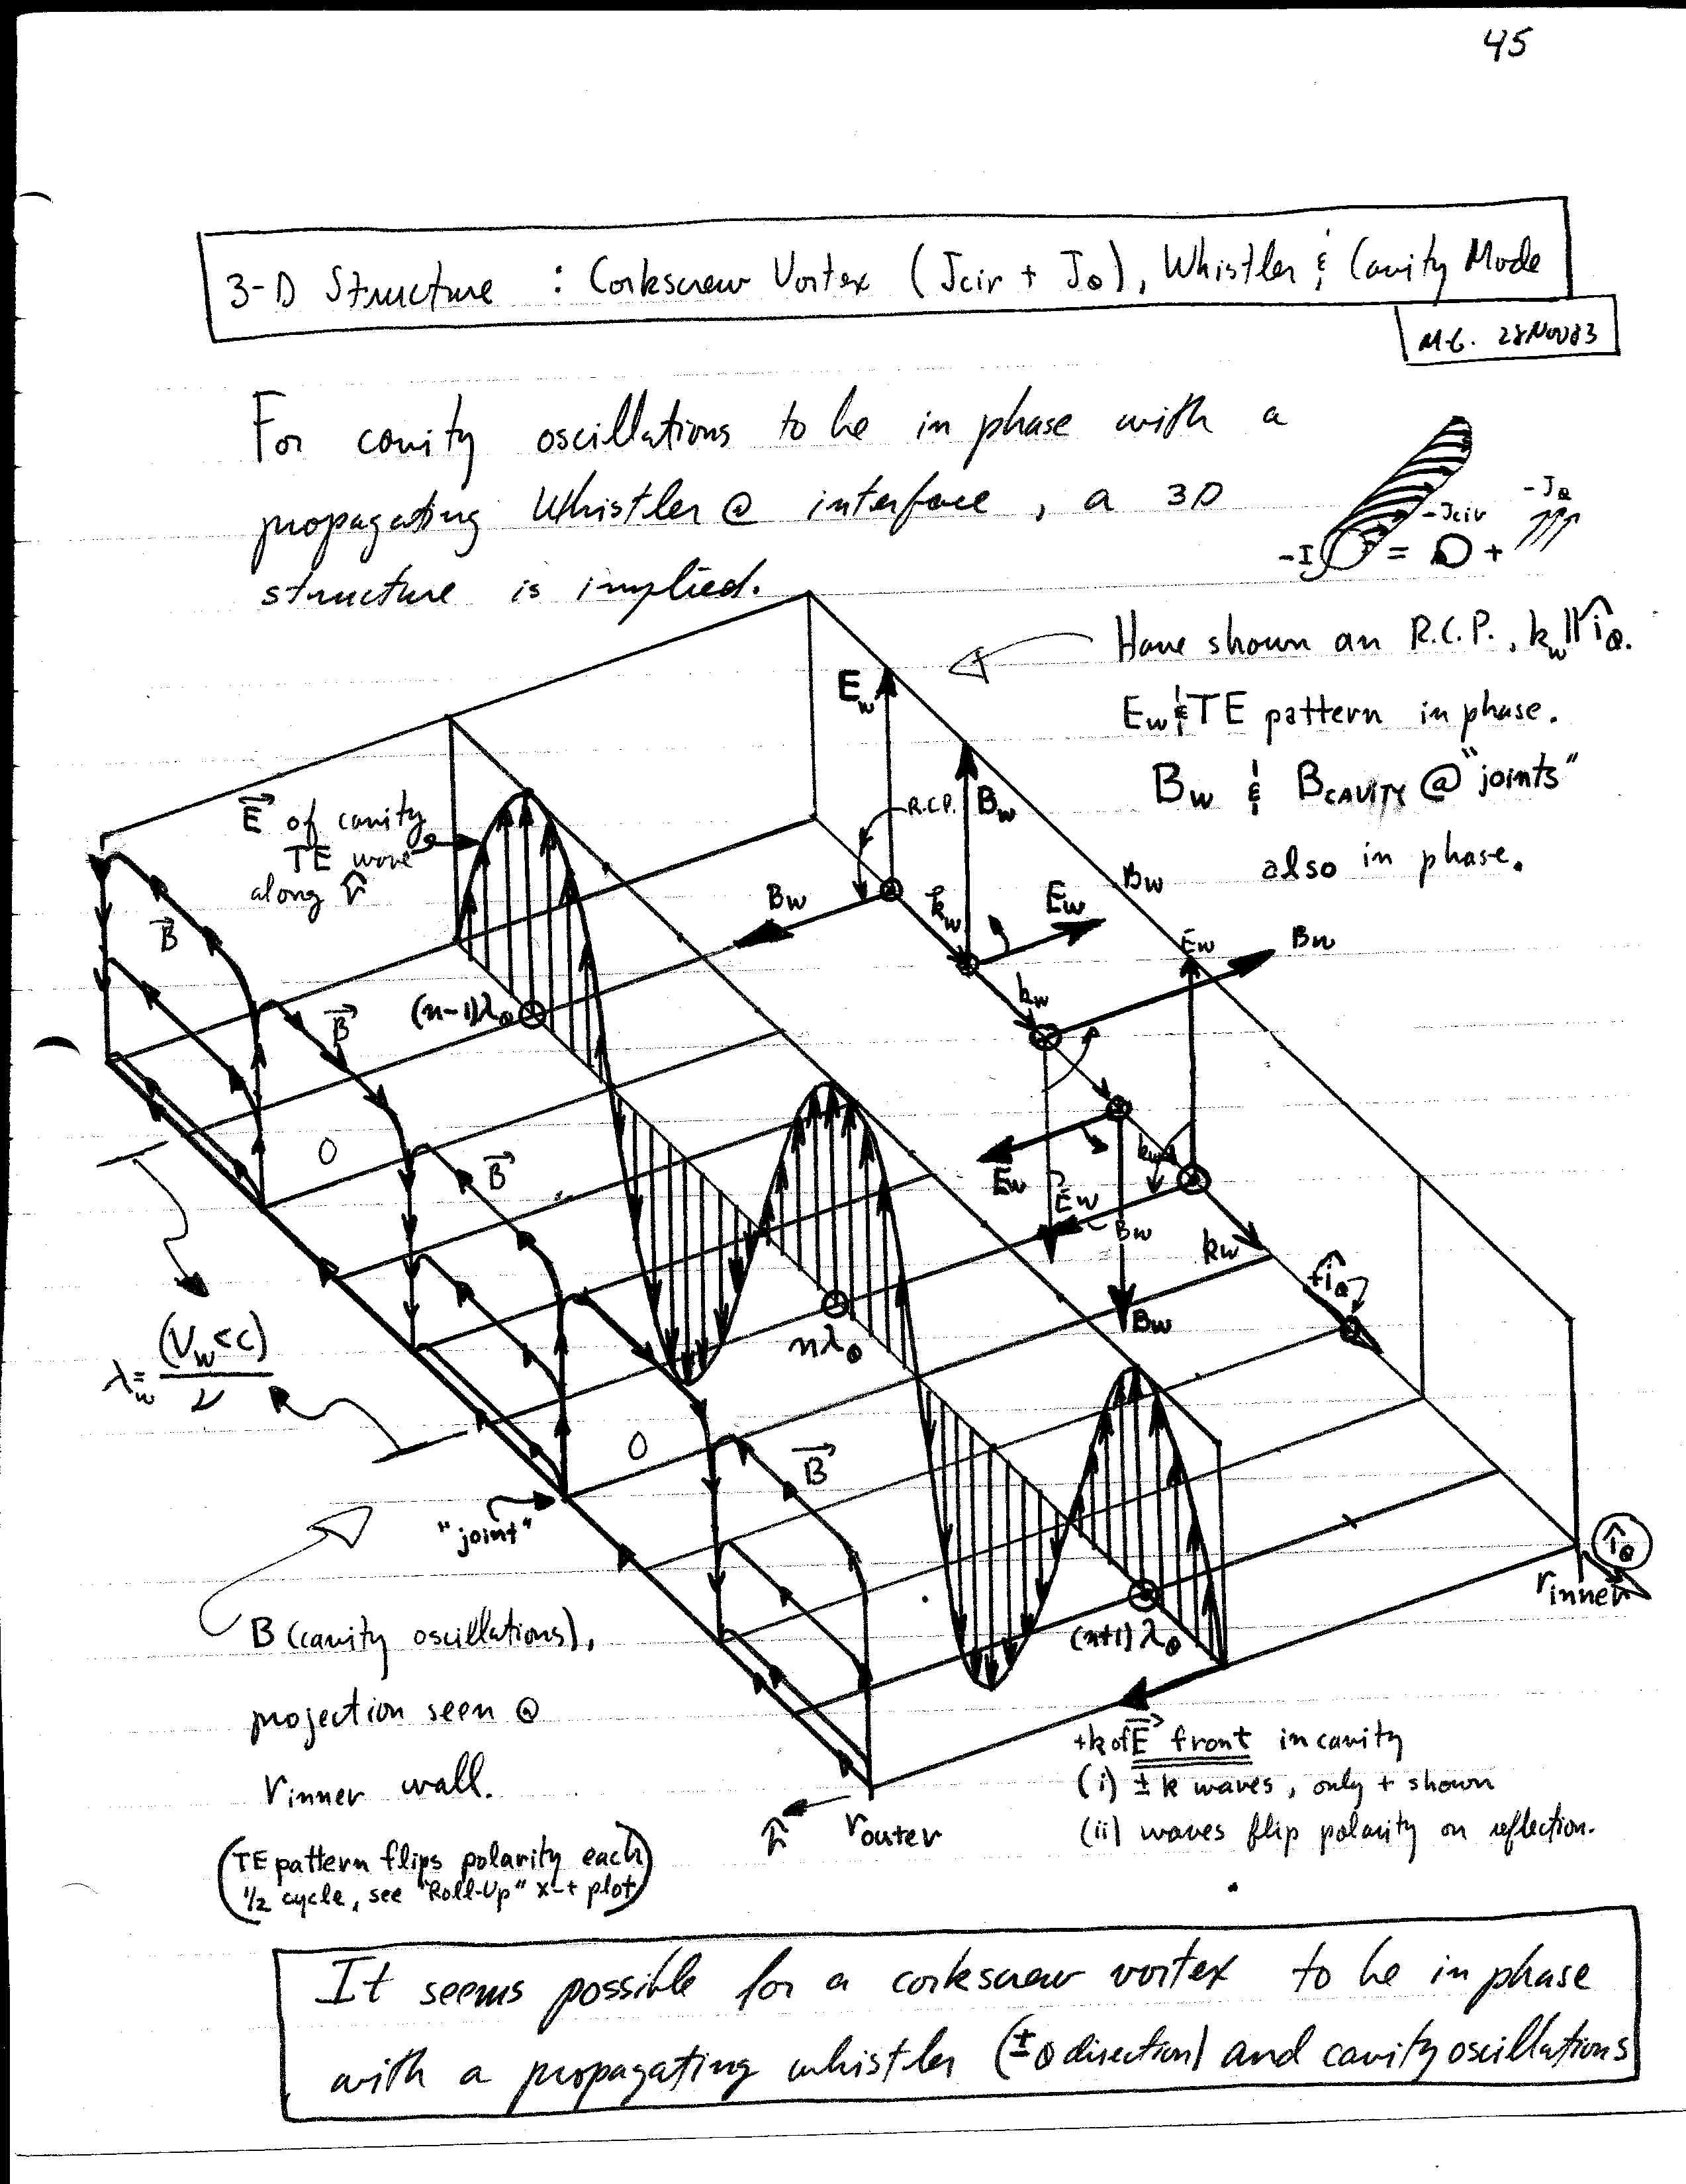 45
3-D Structure : Corkscrew Vortex (Jcir + Jθ), Whistler & Cavity Mode
M.G. 28NOV83
For cavity oscillations to be in phase with a
propagating Whistler @ interface, a 3D
structure is implied.
-Jθ
-Jcir
-I = +
Have shown an R.C.P., kw || îθ.
Ew & TE pattern in phase.
Bw & BCAVITY @ "joints"
also in phase.
Ew
Bw
R.C.P.
E⃗ of cavity
TE wave
along r̂
Bw
kw
Ew
Bw
Ew
Bw
B⃗
(n-1)λθ
B⃗
kw
B⃗
0
Ew
Ew
kw
Bw
kw
+îθ
Bw
nλθ
λw = (Vw < c)
ν
0
B⃗
"joint"
îθ
rinner
B (cavity oscillations),
projection seen @
rinner wall.
(n+1)λθ
+k of E⃗ front in cavity
(i) ± k waves, only + shown
(ii) waves flip polarity on reflection.
r̂
router
(TE pattern flips polarity each
1/2 cycle, see "Roll-Up" x-t plot)
It seems possible for a corkscrew vortex to be in phase
with a propagating whistler (± θ direction) and cavity oscillations